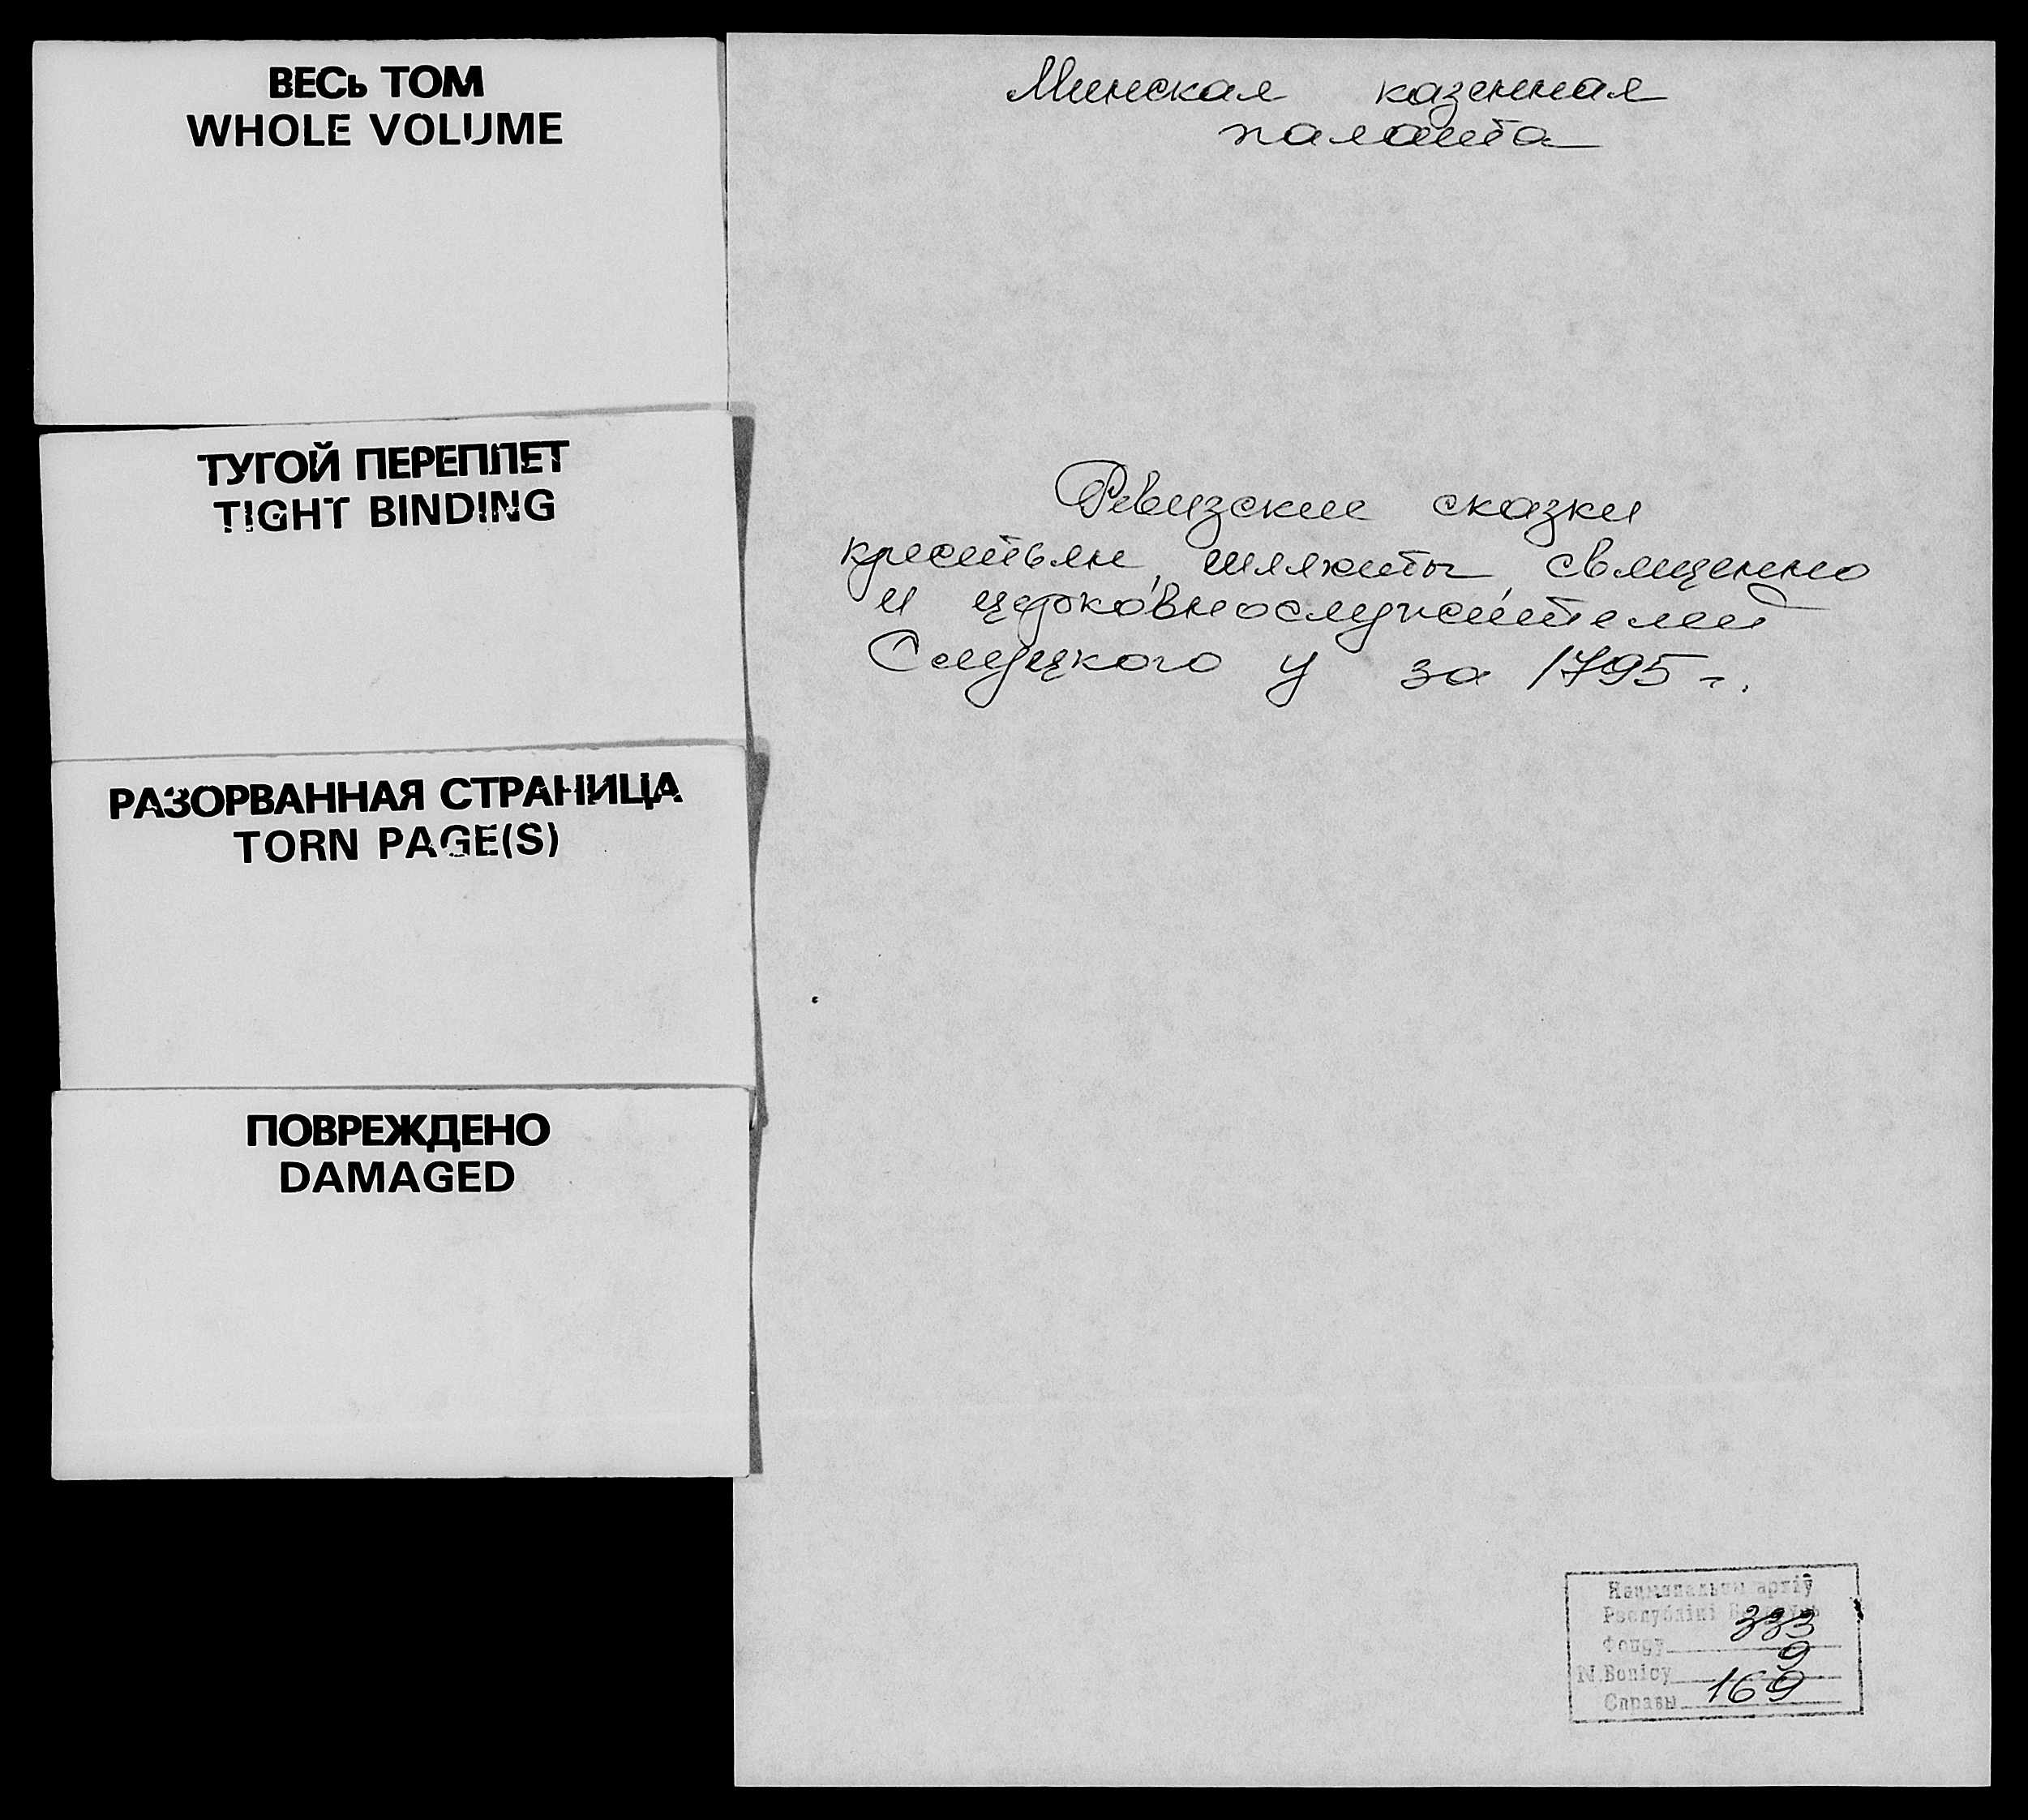 ВЕСЬ ТОМ
WHOLE VOLUME
ТУГОЙ ПЕРЕПЛЕТ
TIGHT BINDING
РАЗОРВАННАЯ СТРАНИЦА
TORN PAGE(S)
ПОВРЕЖДЕНО
DAMAGED
Минская казенная
палата
Ревизские сказки
крестьян, шляхты, священно
и церковнослужителей
Слуцкого у за 1795 г.
Нацыянальны архіў
Рэспублікі Беларусь
Фонду 333
N Вопісу 9
Справы 169